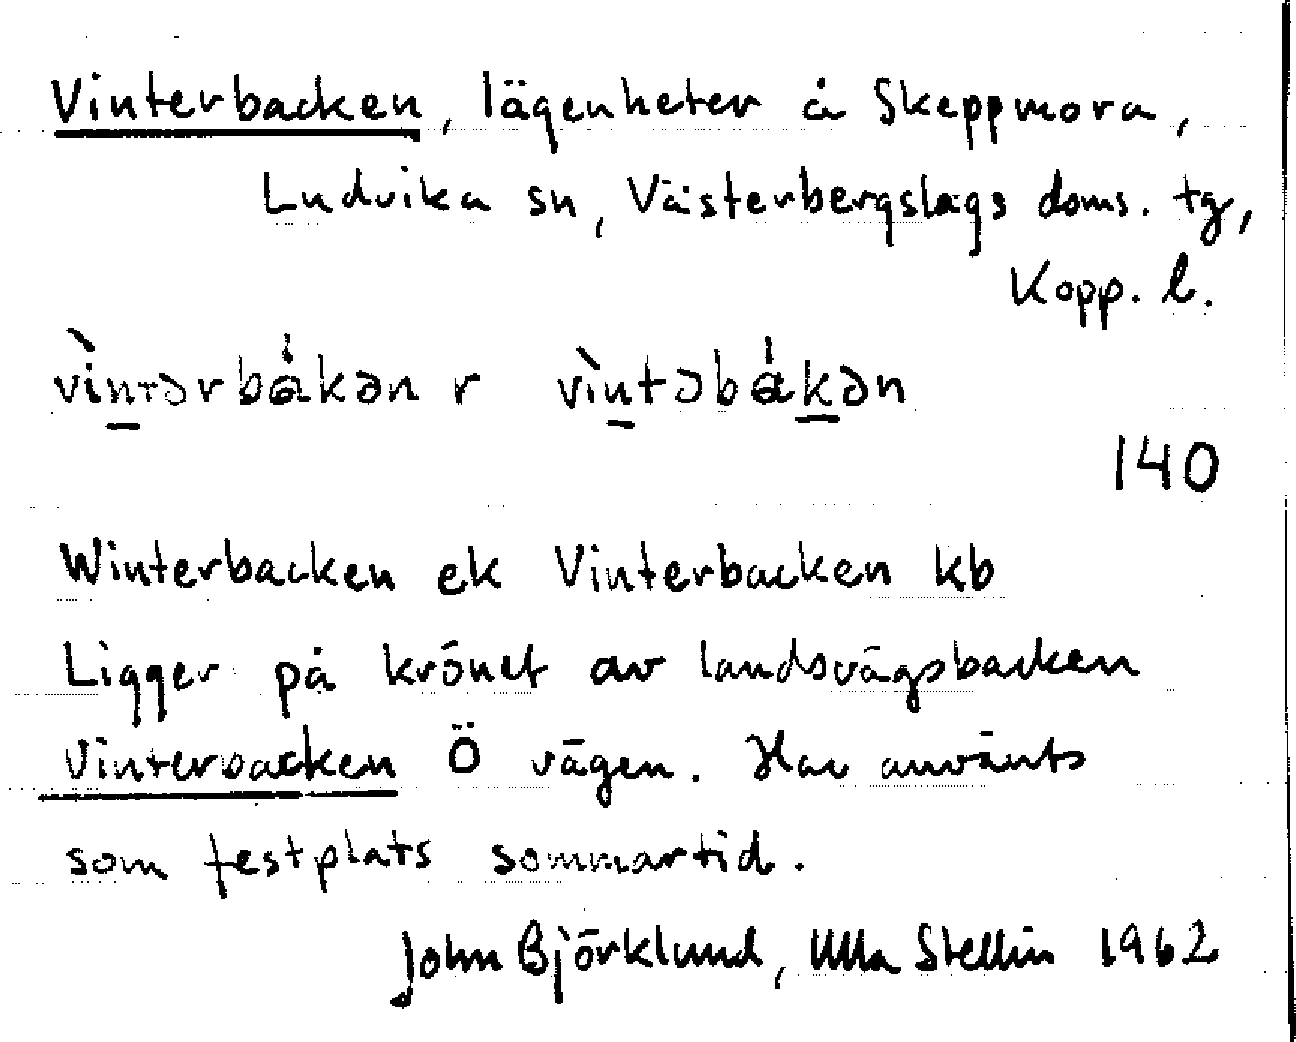 Vinterbacken, lägenheter å Skeppmora,
Ludvika sn, Västerbergslags doms. tg,
Kopp. l.
vìntərbákən r vìntəbákən
140
Winterbacken ek Vinterbacken kb
Ligger på krönet av landsvägsbacken
Vinterbacken Ö vägen. Har använts
som festplats sommartid.
John Björklund, Ulla Stellin 1962